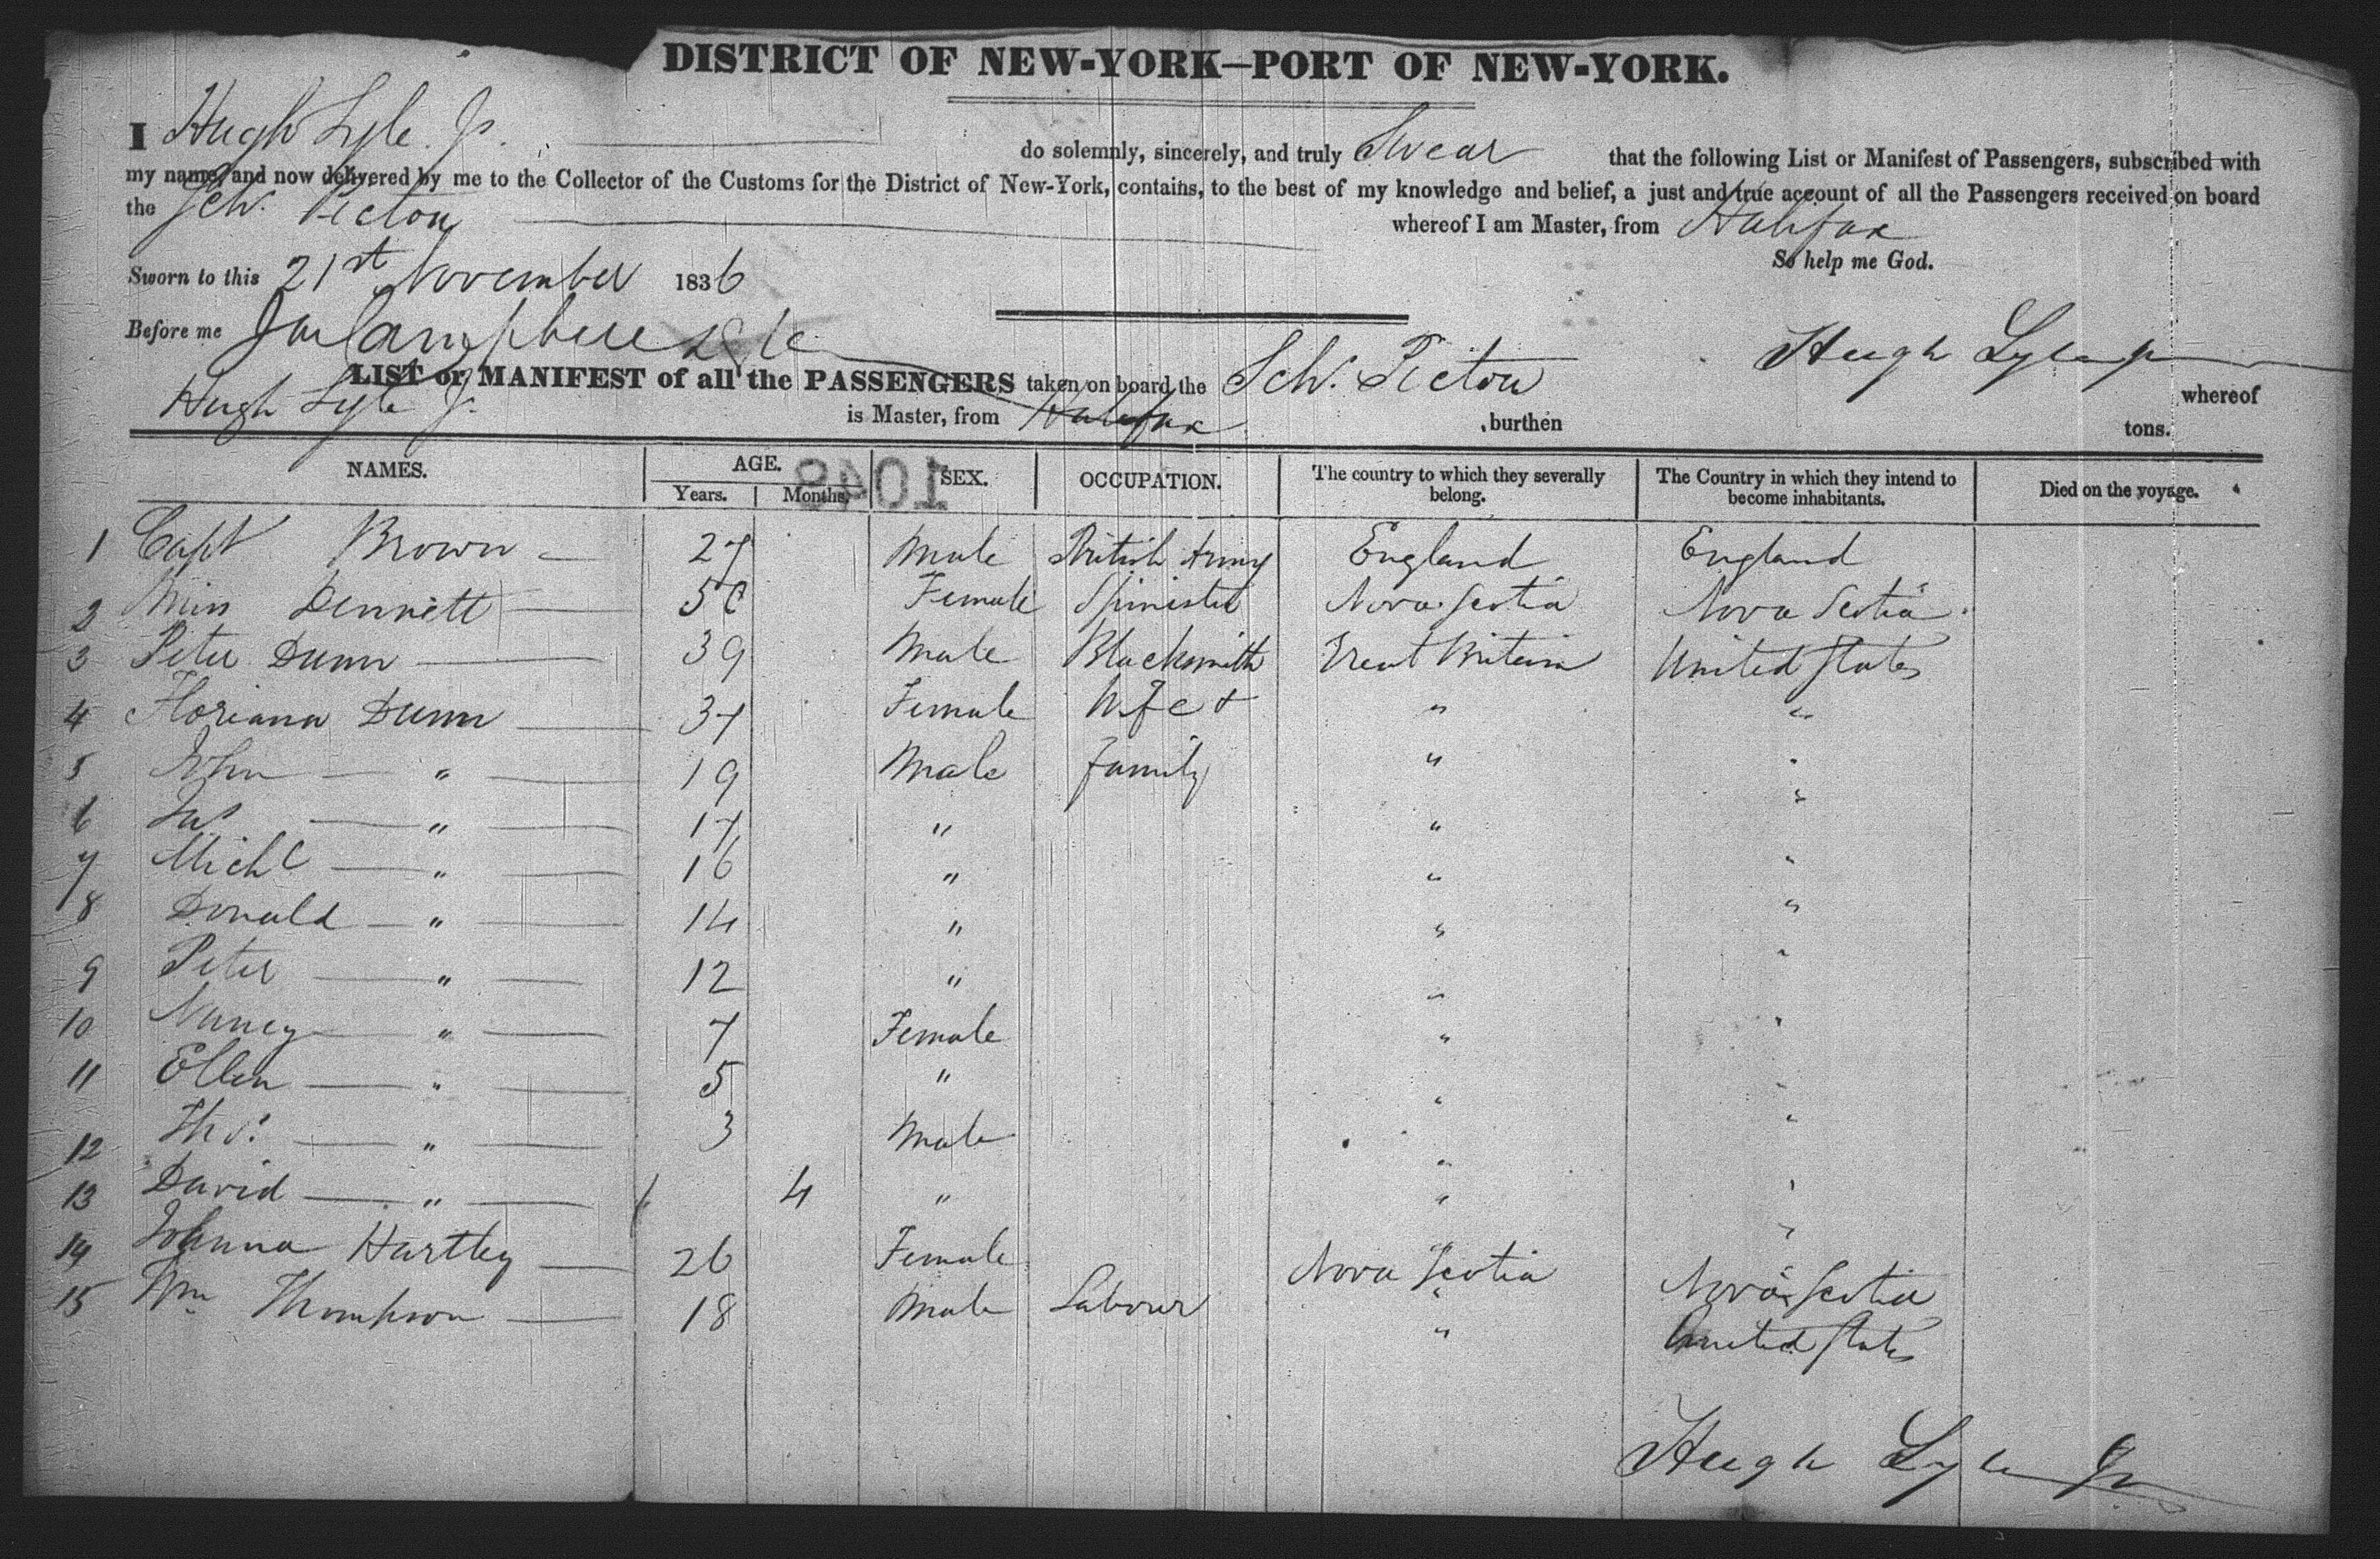 DISTRICT OF NEW-YORK—PORT OF NEW-YORK.
I Hugh Lyle Jr. do solemnly, sincerely, and truly Swear that the following List or Manifest of Passengers, subscribed with
my name, and now delivered by me to the Collector of the Customs for the District of New-York, contains, to the best of my knowledge and belief, a just and true account of all the Passengers received on board
the Schr. Picton whereof I am Master, from Halifax
So help me God.
Sworn to this 21st November 1836
Before me Campbell Hugh Lyle Jr
LIST or MANIFEST of all the PASSENGERS taken on board the Schr. Picton whereof
Hugh Lyle Jr. is Master, from Halifax , burthen tons.
NAMES. AGE. SEX. OCCUPATION. The country to which they severally belong. The Country in which they intend to become inhabitants. Died on the voyage.
Years. Months.
1048
1 Capt Brown 27 Male British Army England England
2 Miss Dennett 50 Female Spinister Nova Scotia Nova Scotia
3 Peter Dunn 39 Male Blacksmith Great Britain United States
4 Floriana Dunn 37 Female Wife & " "
5 John " 19 Male Family " "
6 " 17 " " "
7 Michl " 16 " " "
8 Donald " 14 " " "
9 Peter " 12 " " "
10 Nancy " 7 Female " "
11 Ellen " 5 " " "
12 Thos. " 3 Male " "
13 David " 4 " " "
14 Johanna Hartley 26 Female Nova Scotia Nova Scotia
15 Wm Thompson 18 Male Labourer " United States
Hugh Lyle Jr